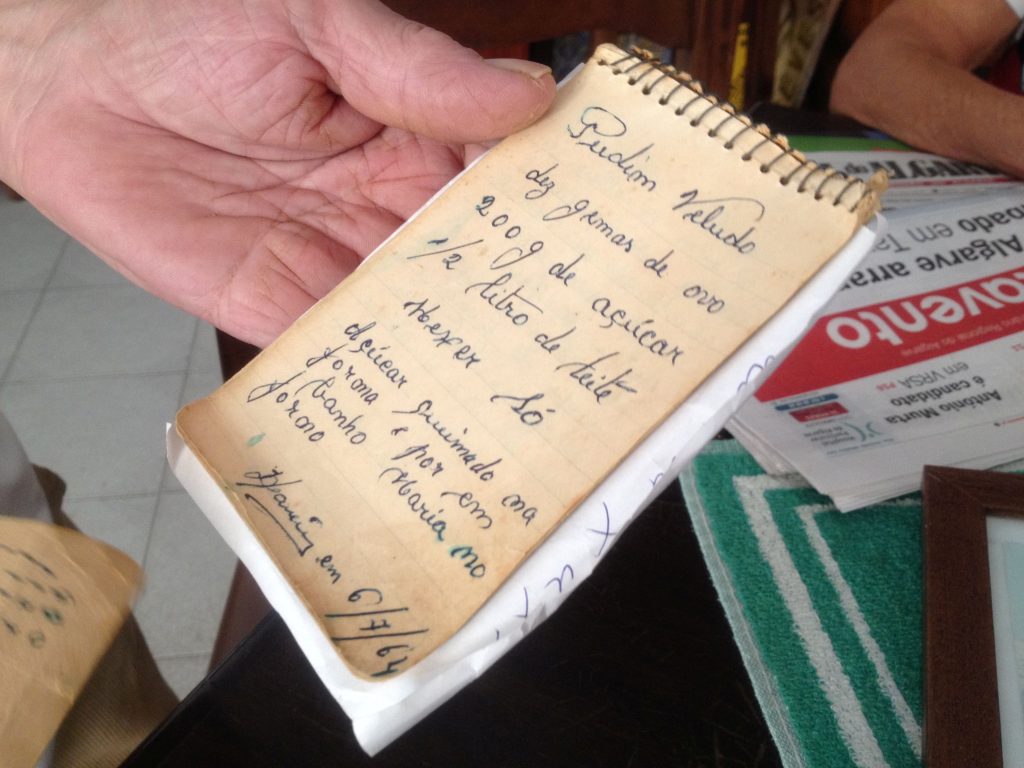 Pudim Veludo
dez gemas de ovo
200 g de açúcar
1/2 litro de leite
Mexer só
açúcar queimado na
forma e por em
banho Maria no
forno
em 6/7/64
Algarve arra
oado em Ta
avento
ário Regional do Algarve
António Murta
é candidato
em VRSA